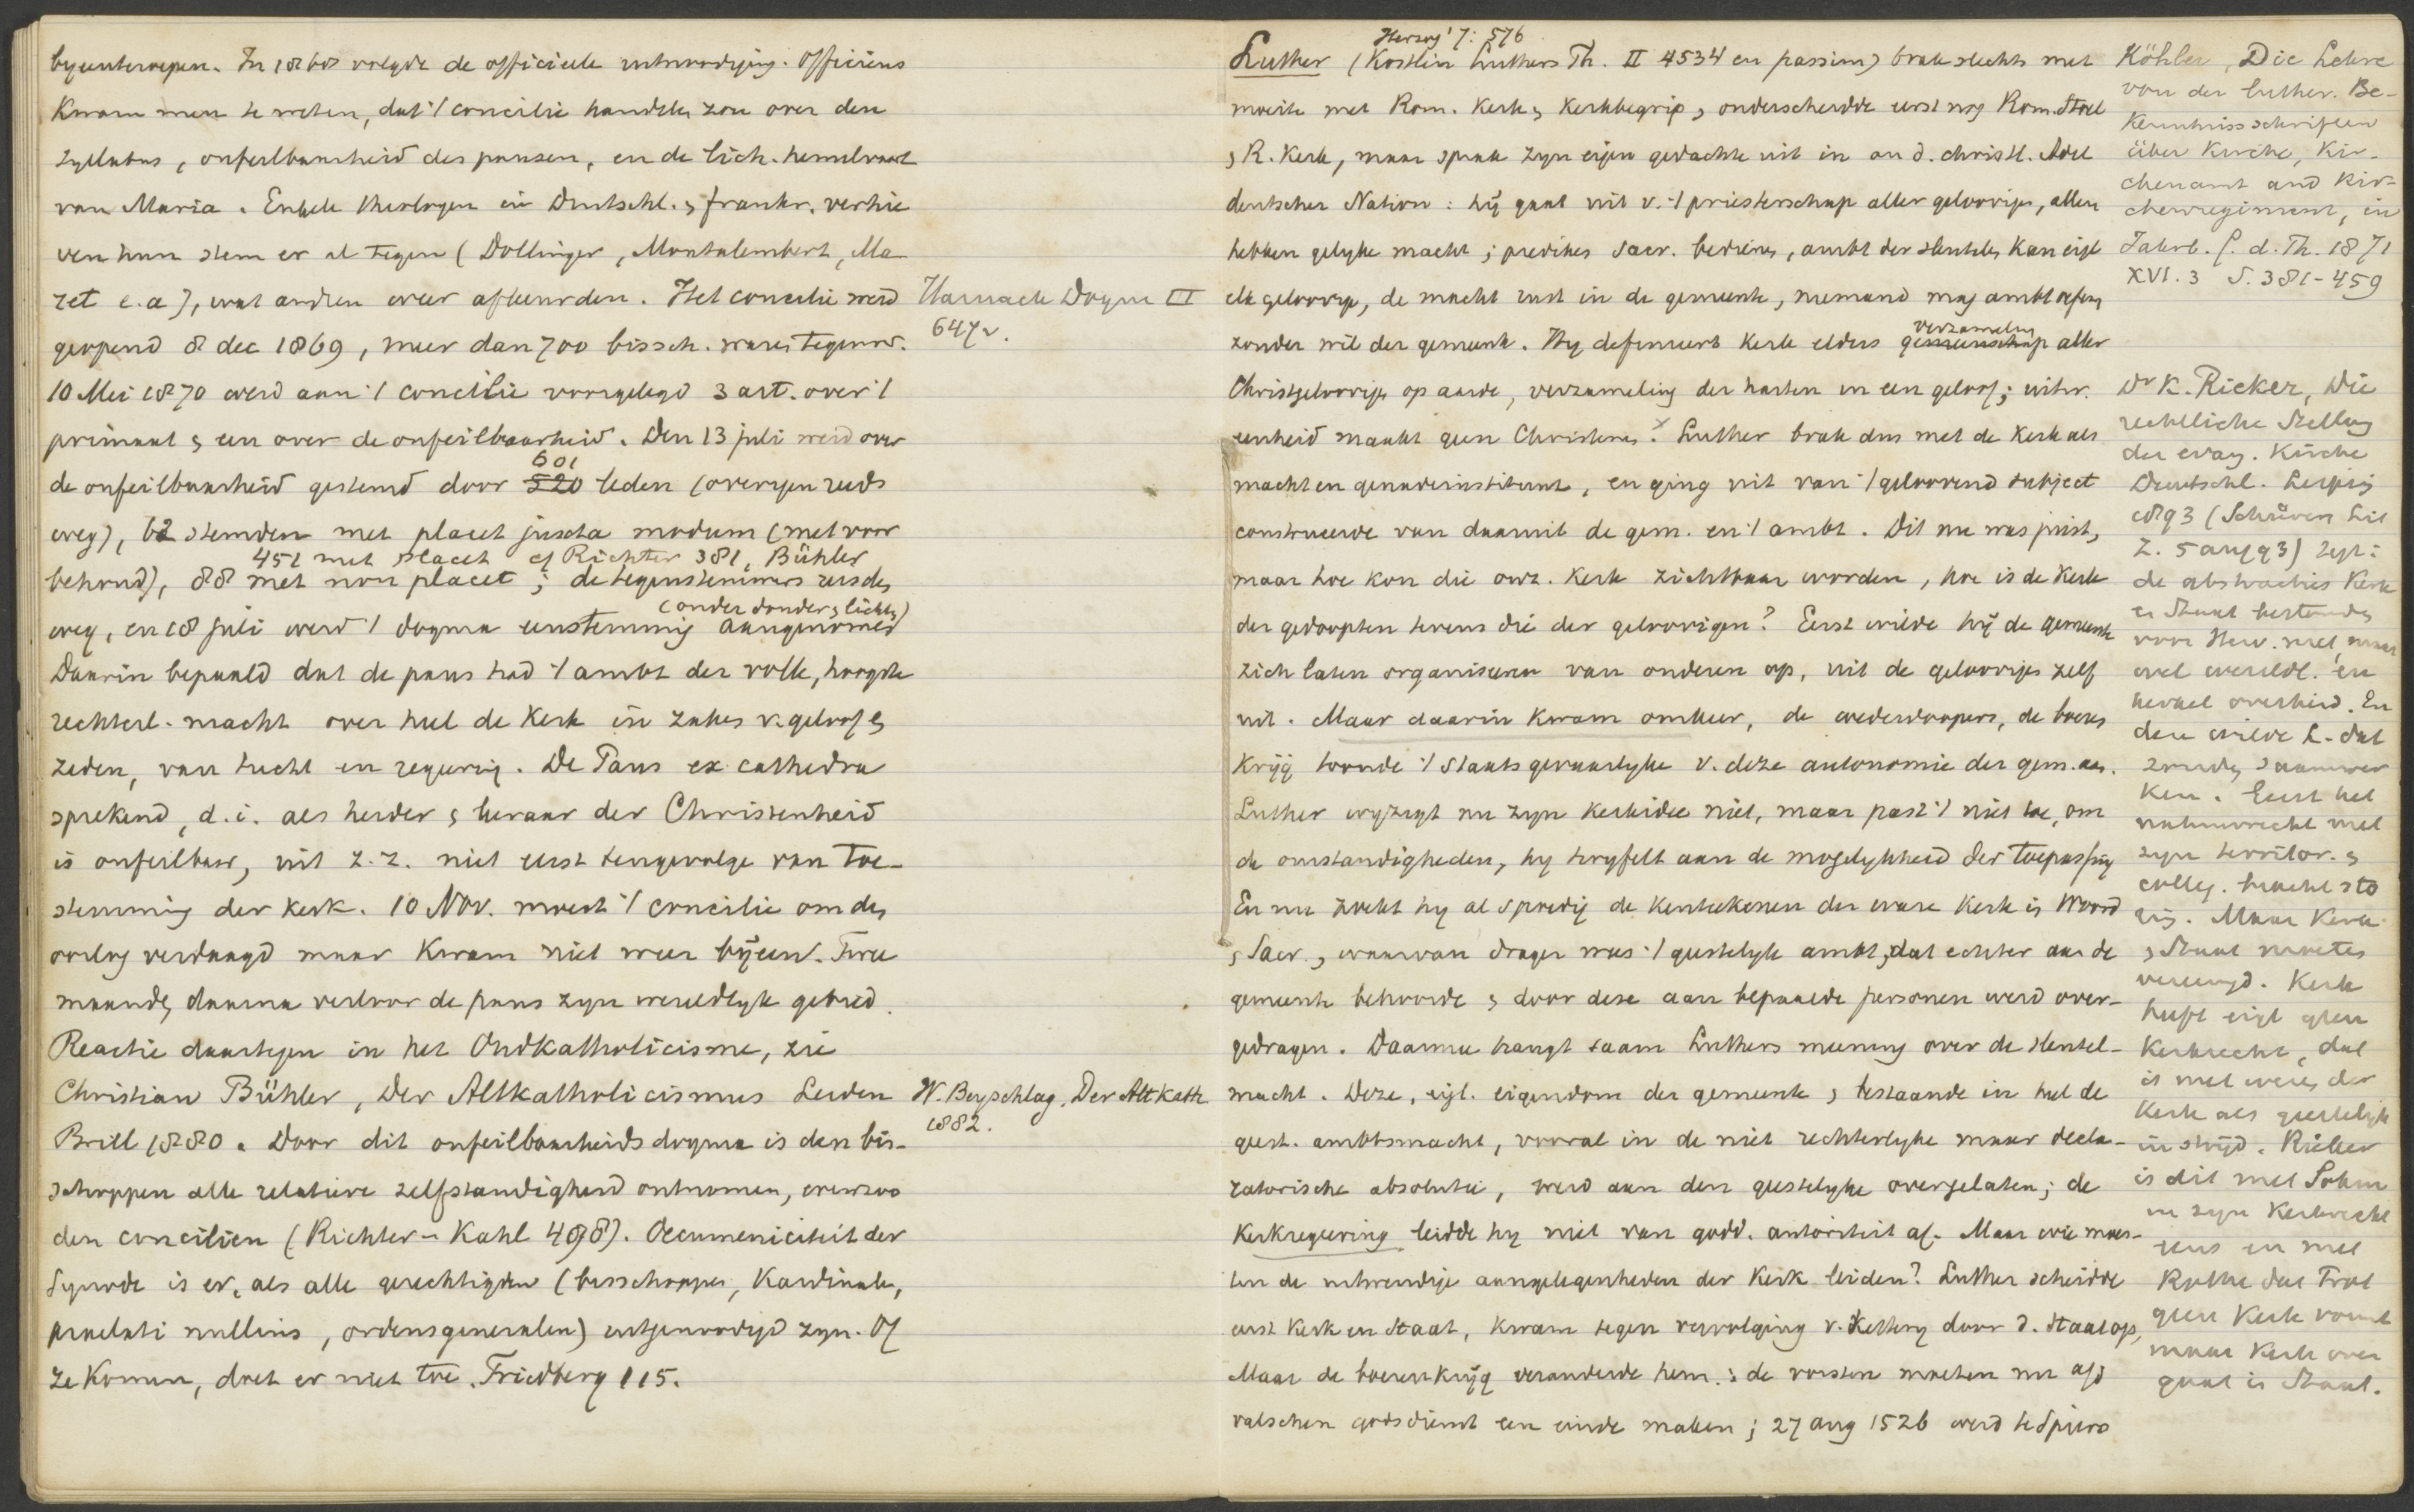 byeenteroepen. In 1868 volgde de officieele uitnoodiging. Officieus
kwam men te weten, dat 't concilie handelen zou over den
syllabus, onfeilbaarheid des pausen, en de lich. hemelvaart
van Maria. Enkele theologen in Duitschl. & frankr. verhie
ven hun stem er al tegen (Dollinger, Montalembert, Ma
ret e.a), wat andren weer afkeurden. Het concilie werd
geopend 8 dec 1869, meer dan 700 bissch. waren tegenw.
10 Mei 1870 werd aan 't concilie voorgelegd 3 art. over 't
primaat & een over de onfeilbaarheid. Den 13 juli werd over
de onfeilbaarheid gestemd door 520 601 leden (overigen reeds
weg), 62 stemden met placet juxta modum (met voor
451 met placet cf Richter 381, Bühler
behoud), 88 met non placet; de tegenstemmers reisden
(onder donder & licht)
weg, en 18 juli werd 't dogma eenstemmig aangenomen
Daarin bepaald dat de paus had 't ambt der volle, hoogste
rechterl. macht over heel de Kerk in zaken v. geloof &
zeden, van tucht en regeering. De Paus ex cathedra
sprekend, d.i. als herder & leraar der Christenheid
is onfeilbaar, uit z.z. niet eerst tengevolge van toe-
stemming der kerk. 10 Nov. moest 't concilie om den
oorlog verdaagd maar kwam niet weer bijeen. Twee
maanden daarna verloor de paus zyn wereldlyk gebied.
Reactie daartegen in het Oudkatholicisme, zie
Christian Bühler, Der Altkatholicismus Leiden
Brill 1880. Door dit onfeilbaarheidsdogma is den bis-
schoppen alle relatieve zelfstandigheid ontnomen, evenzoo
den conciliën (Richter-Kahl 498). Oecumeniciteit der
Synode is er, als alle gerechtigden (bisschoppen, Kardinalen,
praelati nullius, ordensgeneralen) uitgenoodigd zyn. Of
ze komen, doet er niet toe. Friedberg 115.
Harnack Dogm III
647v.
W. Beyschlag, Der Altkath
1882.
Herzog² 7: 576
Luther (Kostlin Luthers Th. II 4534 en passim) brak slechts met
moeite met Rom. kerk & kerkbegrip, onderscheidde eerst nog Rom. Stoel
& R. Kerk, maar sprak zyn eigen gedachte uit in an d. christl. Adel
deutscher Nation: hij gaat uit v. 't priesterschap aller geloovigen, allen
hebben gelyke macht; prediken sacr. bedienen, ambt der sleutels kan eigl
elk geloovige, de macht rust in de gemeente, niemand mag ambt oefenen
zonder wil der gemeente. Hy definieert kerk elders gemeenschap verzameling aller
Christgeloovigen op aarde, verzameling der harten in een geloof; uitw.
eenheid maakt geen Christenen. Luther brak dus met de Kerk als
macht en genadeinstituut, en ging uit van 't geloovend subject
construeerde van daaruit de gem. en 't ambt. Dit nu was juist,
maar hoe kon die onz. Kerk zichtbaar worden, hoe is de Kerk
der gedoopten tevens die der geloovigen? Eerst wilde hij de gemeente
zich laten organiseeren van onderen op, uit de geloovigen zelf
uit. Maar daarin kwam omkeer, de wederdoopers, de boeren
krijg toonde 't staatsgevaarlyke v. deze autonomie der gem. aan.
Luther wyzigt nu zyn kerkidee niet, maar past 't niet toe, om
de omstandigheden, hy twyfelt aan de mogelykheid der toepassing
En nu zoekt hy al spoedig de kenteekenen der ware Kerk in Woord
& Sacr., waarvan drager was 't geestelyk ambt, dat echter aan de
gemeente behoorde & door deze aan bepaalde personen werd over-
gedragen. Daarmee hangt saam Luthers meening over de sleutel-
macht. Deze, eigl. eigendom der gemeente & bestaande in heel de
geest. ambtsmacht, vooral in de niet rechterlyke maar decla-
ratorische absolutie, werd aan den geestelyke overgelaten; de
Kerkregeering leidde hy niet van godd. autoriteit af. Maar wie moes-
ten de uitwendige aangelegenheden der Kerk leiden? Luther scheidde
eerst Kerk en Staat, kwam tegen vervolging v. Kettery door d. Staat op,
Maar de boerenkrijg veranderde hem: de vorsten moeten nu afg
valschen godsdienst een einde maken; 27 aug 1526 werd te Spiers
Köhler, Die Lehre
von der luther. Be-
kenntnissschriften
über Kirche, Kir-
chenamt und Kir-
chenregiment, in
Jahrb. f. d. Th. 1871
XVI. 3 S. 381-459
Dr K. Rieker, Die
rechtliche Stellung
der evang. Kirche
Deutschl. Leipzig
1893 (Schürer Lit
Z. 5 aug 93) zegt:
de abstracties Kerk
en Staat bestonden
voor Herv. niet, maar
wel wereldl. en
kerkel overheid. En
deze wilde L. dat
zouden saamwer
ken. Eerst het
natuurrecht met
zyn territor. &
colleg. bracht sto
ring. Maar Kerk
& Staat moeten
vereenigd. Kerk
heeft eigl geen
kerkrecht, dat
is met wezen der
Kerk als geestelyk
in stryd. Rieker
is dit met Sohm
in zyn Kerkrecht
eens en met
Rothe dat Prot
geen Kerk vormt
maar Kerk over
gaat in Staat.